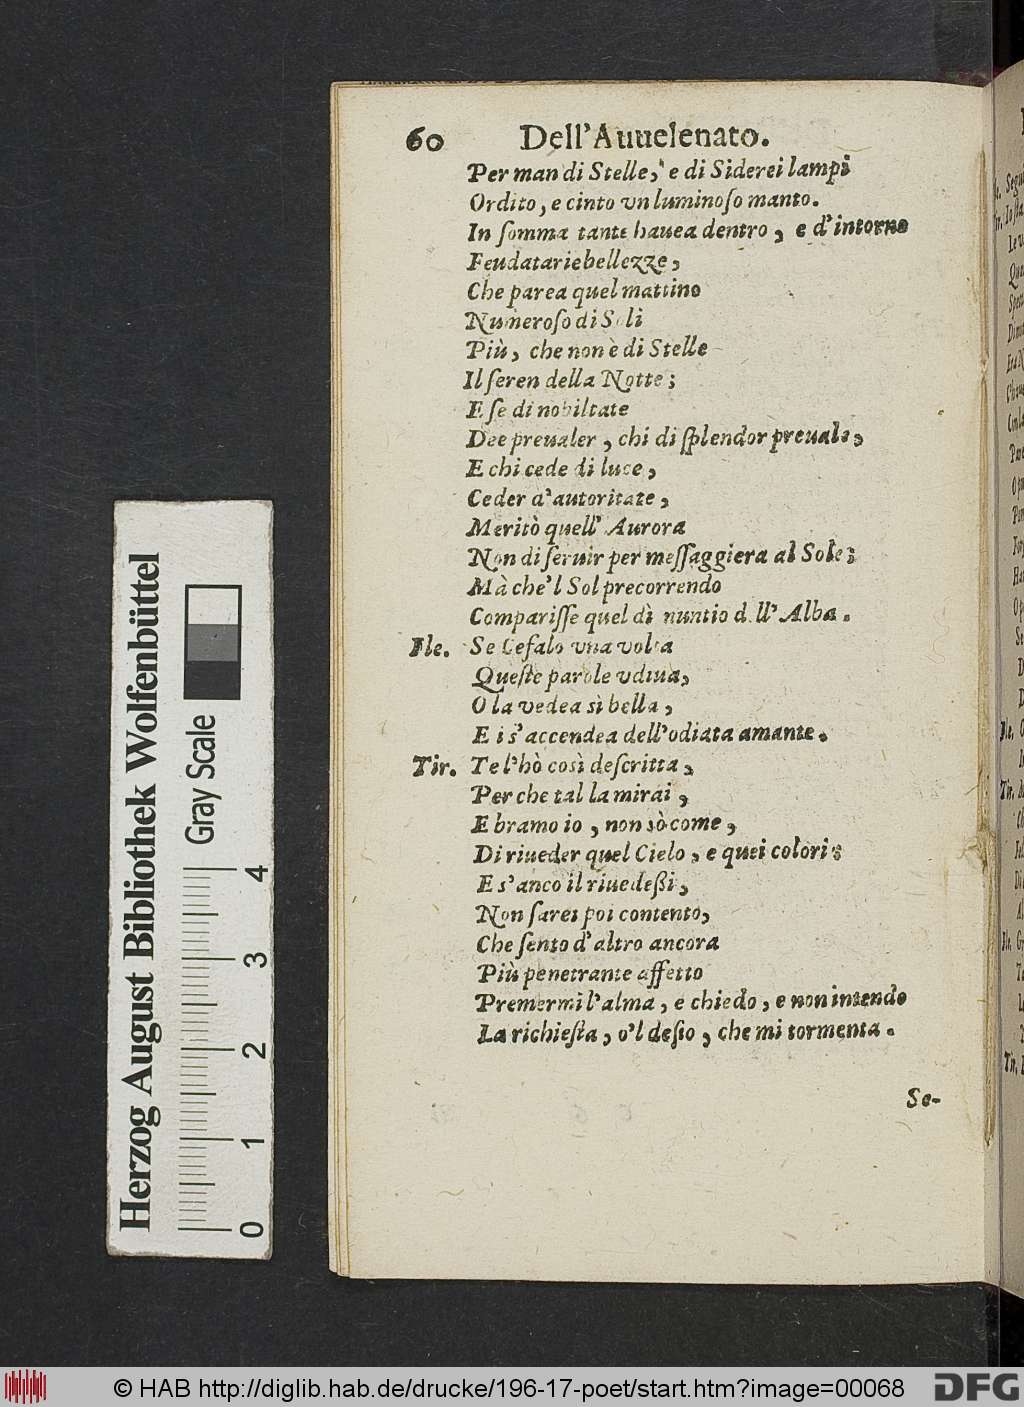 60 Dell'Auuelenato.
Per man di Stelle, e di Siderei lampi
Ordito, e cinto vn luminoſo manto.
In ſomma tante hauea dentro, e d'intorno
Feudatarie bellezze,
Che parea quel mattino
Numeroſo di Soli
Più, che non è di Stelle
Il ſeren della Notte;
E ſe di nobiltate
Dee preualer, chi di ſplendor preuale,
E chi cede di luce,
Ceder d'autoritate,
Meritò quell' Aurora
Non di ſeruir per meſſaggiera al Sole;
Mà che'l Sol precorrendo
Compariſſe quel dì nuntio dell' Alba.
Ile. Se Cefalo vna volta
Queſte parole vdiua,
O la vedea sì bella,
E i s'accendea dell'odiata amante.
Tir. Te l'hò così deſcritta,
Perche tal la mirai,
E bramo io, non sò come,
Di riueder quel Cielo, e quei colori:
E s'anco il riuedeßi,
Non ſarei poi contento,
Che ſento d'altro ancora
Più penetrante affetto
Premermi l'alma, e chiedo, e non intendo
La richieſta, o'l deſio, che mi tormenta.
Se-
Herzog August Bibliothek Wolfenbüttel
Gray Scale
0 1 2 3 4
© HAB http://diglib.hab.de/drucke/196-17-poet/start.htm?image=00068
DFG